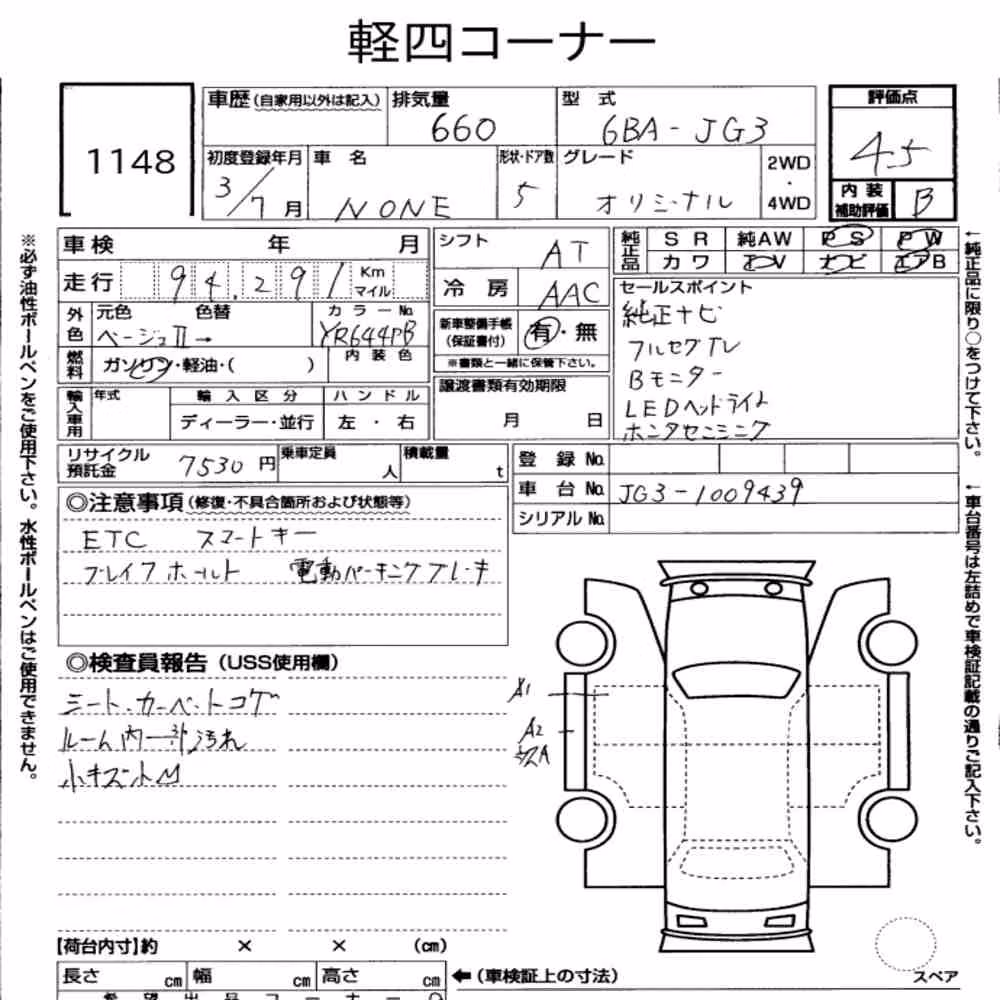 軽四コーナー
1148
車歴(自家用以外は記入) 排気量 型 式 評価点
660 6BA-JG3 4.5
初度登録年月 車 名 形状・ドア数 グレード 2WD・4WD 内装補助評価 B
3/7月 NONE 5 オリジナル
車検 年 月 シフト AT 純正品 SR 純AW PS PW
走行 94,291 Km マイル 冷 房 AAC カワ TV ナビ エアB
外色 元色 色替 カラーNo. 新車整備手帳 (保証書付) 有・無 セールスポイント
ベージュII→ YR644PB ※書類と一緒に保管下さい。 純正ナビ
燃料 ガソリン・軽油・( ) 内装色 譲渡書類有効期限 フルセグTV
輸入車用 年式 輸入区分 ハンドル 月 日 Bモニター
ディーラー・並行 左・右 LEDヘッドライト
ホンダセンシング
リサイクル預託金 7530円 乗車定員 人 積載量 t 登 録 No.
車 台 No. JG3-1009439
シリアルNo.
◎注意事項(修復・不具合箇所および状態等)
ETC スマートキー
ブレイクホールド 電動パーキングブレーキ
◎検査員報告(USS使用欄)
シート・カーペットコゲ
ルーム内一部汚れ
小キズ凹M
A1
A2
【荷台内寸】約 × × (cm)
長さ cm 幅 cm 高さ cm ←(車検証上の寸法) スペア
希望出品コーナー
※必ず油性ボールペンをご使用下さい。水性ボールペンはご使用できません。
←純正品に限り○をつけて下さい。
←車台番号は左詰めで車検証記載の通りご記入下さい。